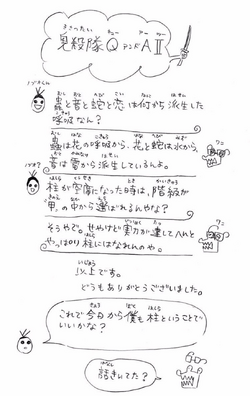 きさつたい キュー アー ツー
鬼殺隊QアンドAⅡ
蟲と音と蛇と恋は何から派生した
呼吸なん?
蟲は花の呼吸から、花と蛇は水から、
音は雷から派生しているんよ。
柱が空席になった時は、階級が
甲の中から選ばれるんやな?
そうやで。せやけど実力が達してへんと
やっぱり柱にはなれへんのや。
いじょう
以上です。
どうもありがとうございました。
これで今日から僕も柱ということで
いいかな?
はなし
話きいてた?